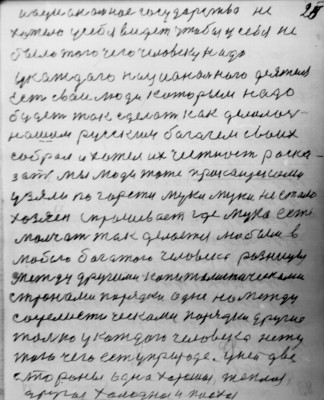 национальное государство не 28
хотело у себя видет чтобы у себя не
было того чего человеку надо
у каждого национального деятеля
есть свои люди которым надо
будет так сделат как делалос у
нашим русским богачем своих
собрал и хотел их честност раска
зат мы люди тоже приказчиками
узяли по горсти муки муки не стало
хозяен спрашивает где мука есть
молчат так делается любым в
любого богатого человека розницы
между другими капиталистическими
странами порядки одне но между
социлестическими порядки другие
только у каждого человека нету
того чего есть у природе. у ней две
стороны одна хорошая, теплая,
другая холодная и плоха